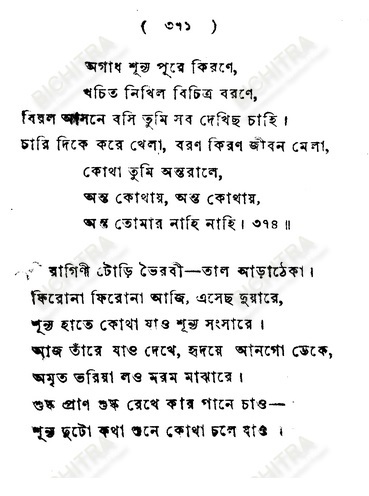 ( ৩৭১ )
অগাধ শূন্য পূরে কিরণে,
খচিত নিখিল বিচিত্র বরণে,
বিরল আসনে বসি তুমি সব দেখিছ চাহি।
চারি দিকে করে খেলা, বরণ কিরণ জীবন মেলা,
কোথা তুমি অন্তরালে,
অন্ত কোথায়, অন্ত কোথায়,
অন্ত তোমার নাহি নাহি। ৩৭৪॥
রাগিণী টোড়ি ভৈরবী—তাল আড়াঠেকা।
ফিরোনা ফিরোনা আজি, এসেছ দুয়ারে,
শূন্য হাতে কোথা যাও শূন্য সংসারে।
আজ তাঁরে যাও দেখে, হৃদয়ে আনগো ডেকে,
অমৃত ভরিয়া লও মরম মাঝারে।
শুষ্ক প্রাণ শুষ্ক রেখে কার পানে চাও—
শূন্য দুটো কথা শুনে কোথা চলে যাও।
BICHITRA